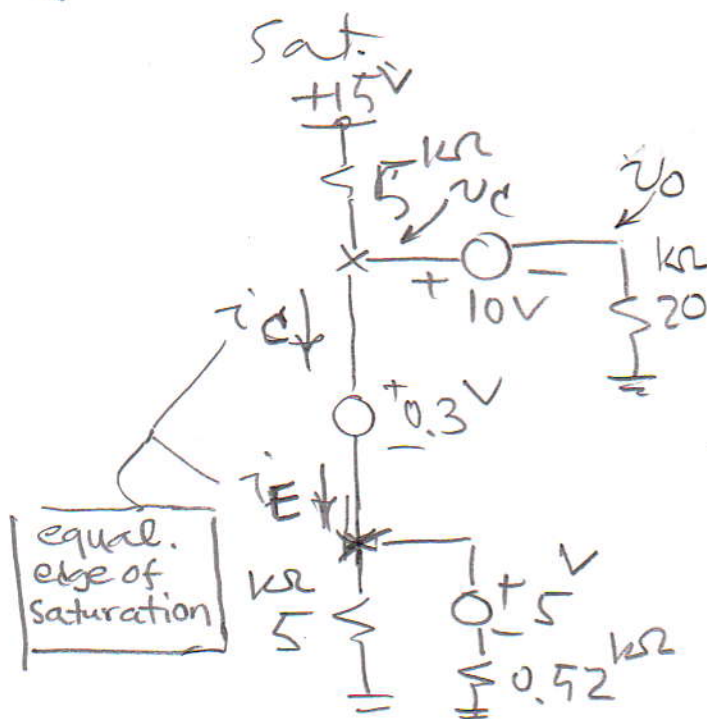 Sat.
+15V
5 kΩ
vC
vO
+ 10V −
kΩ
20
iC
+ 0.3V −
iE
equal.
edge of
saturation
kΩ
5
+ 5V −
0.52 kΩ